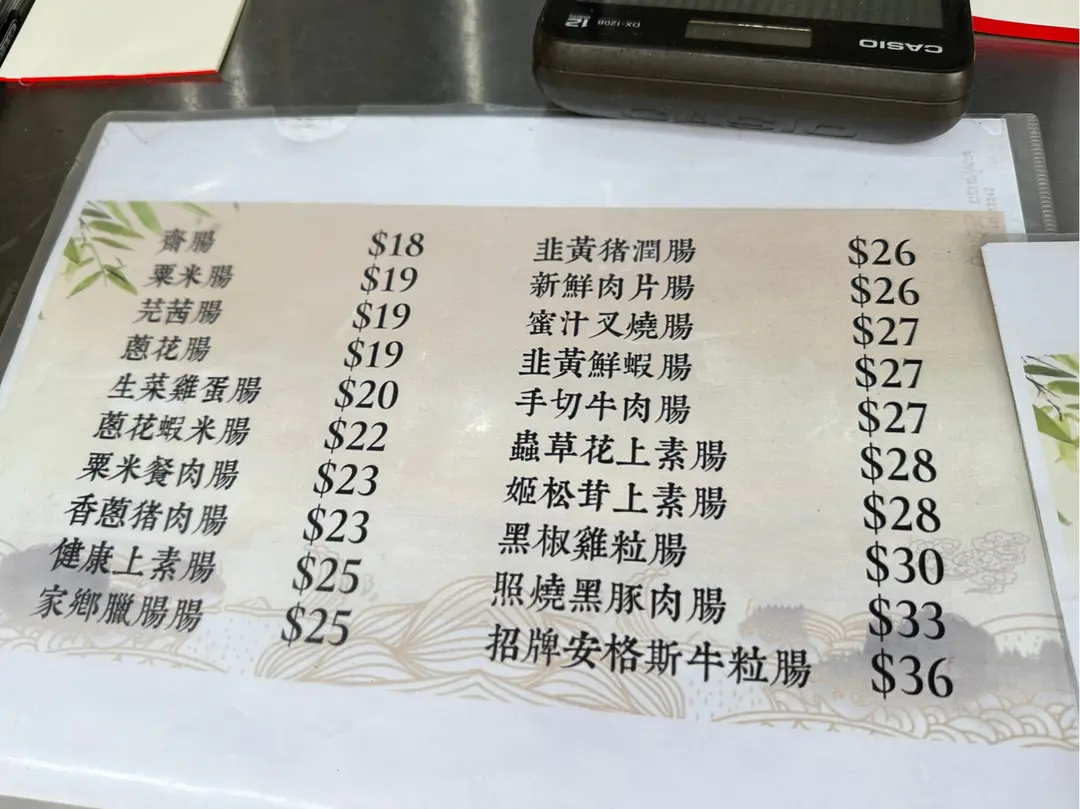 CASIO
DX-120B
12
CASIO
齋腸 $18
粟米腸 $19
芫茜腸 $19
蔥花腸 $19
生菜雞蛋腸 $20
蔥花蝦米腸 $22
粟米餐肉腸 $23
香蔥猪肉腸 $23
健康上素腸 $25
家鄉臘腸腸 $25
韭黃猪潤腸 $26
新鮮肉片腸 $26
蜜汁叉燒腸 $27
韭黃鮮蝦腸 $27
手切牛肉腸 $27
蟲草花上素腸 $28
姬松茸上素腸 $28
黑椒雞粒腸 $30
照燒黑豚肉腸 $33
招牌安格斯牛粒腸 $36